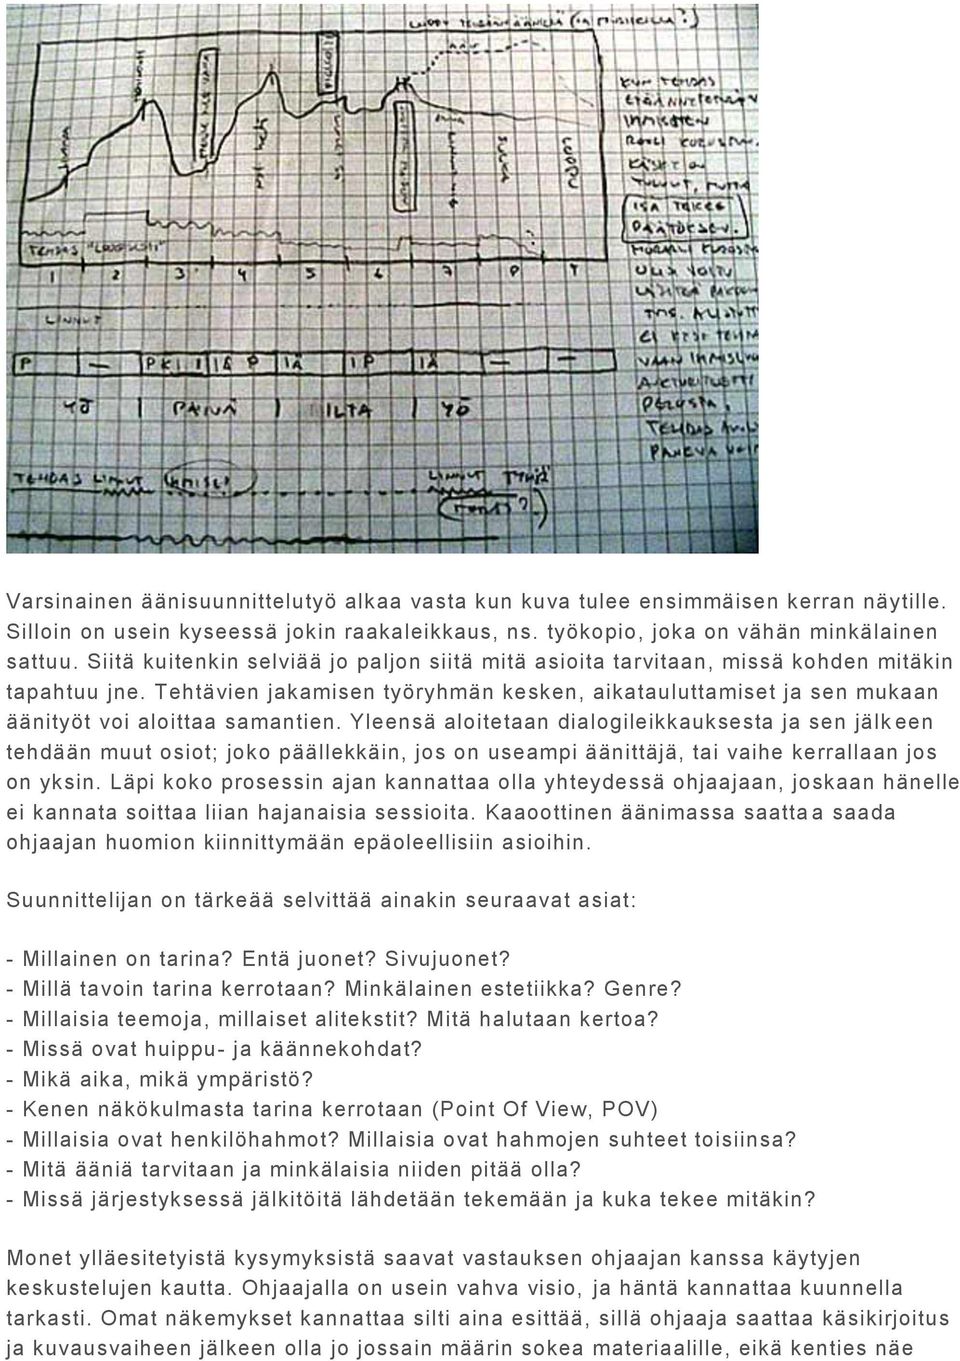 KUN TEHDAS
ISÄ TEKEE
PÄÄTÖKSEN.
TEHDAS
1 2 3 4 5 6 7 8 9
LINNUT
P — P I IÄ P IÄ I P IÄ — —
YÖ | PÄIVÄ | ILTA | YÖ
PERUSTA.
TEHDAS
TEHDAS LINNUT LINNUT
Varsinainen äänisuunnittelutyö alkaa vasta kun kuva tulee ensimmäisen kerran näytille.
Silloin on usein kyseessä jokin raakaleikkaus, ns. työkopio, joka on vähän minkälainen
sattuu. Siitä kuitenkin selviää jo paljon siitä mitä asioita tarvitaan, missä kohden mitäkin
tapahtuu jne. Tehtävien jakamisen työryhmän kesken, aikatauluttamiset ja sen mukaan
äänityöt voi aloittaa samantien. Yleensä aloitetaan dialogileikkauksesta ja sen jälkeen
tehdään muut osiot; joko päällekkäin, jos on useampi äänittäjä, tai vaihe kerrallaan jos
on yksin. Läpi koko prosessin ajan kannattaa olla yhteydessä ohjaajaan, joskaan hänelle
ei kannata soittaa liian hajanaisia sessioita. Kaaoottinen äänimassa saattaa saada
ohjaajan huomion kiinnittymään epäoleellisiin asioihin.
Suunnittelijan on tärkeää selvittää ainakin seuraavat asiat:
- Millainen on tarina? Entä juonet? Sivujuonet?
- Millä tavoin tarina kerrotaan? Minkälainen estetiikka? Genre?
- Millaisia teemoja, millaiset alitekstit? Mitä halutaan kertoa?
- Missä ovat huippu- ja käännekohdat?
- Mikä aika, mikä ympäristö?
- Kenen näkökulmasta tarina kerrotaan (Point Of View, POV)
- Millaisia ovat henkilöhahmot? Millaisia ovat hahmojen suhteet toisiinsa?
- Mitä ääniä tarvitaan ja minkälaisia niiden pitää olla?
- Missä järjestyksessä jälkitöitä lähdetään tekemään ja kuka tekee mitäkin?
Monet ylläesitetyistä kysymyksistä saavat vastauksen ohjaajan kanssa käytyjen
keskustelujen kautta. Ohjaajalla on usein vahva visio, ja häntä kannattaa kuunnella
tarkasti. Omat näkemykset kannattaa silti aina esittää, sillä ohjaaja saattaa käsikirjoitus
ja kuvausvaiheen jälkeen olla jo jossain määrin sokea materiaalille, eikä kenties näe